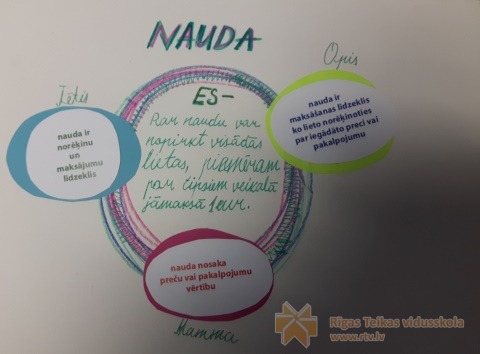 NAUDA
Opis
nauda ir
maksāšanas līdzeklis
ko lieto norēķinoties
par iegādāto preci vai
pakalpojumu
Tētis
nauda ir
norēķinu
un
maksājumu
līdzeklis
ES-
Par naudu var
nopirkt visādas
lietas, piemēram
par čipsiem veikalā
jāmaksā 1eur.
nauda nosaka
preču vai pakalpojumu
vērtību
Mamma
Rīgas Teikas vidusskola
www.rtv.lv